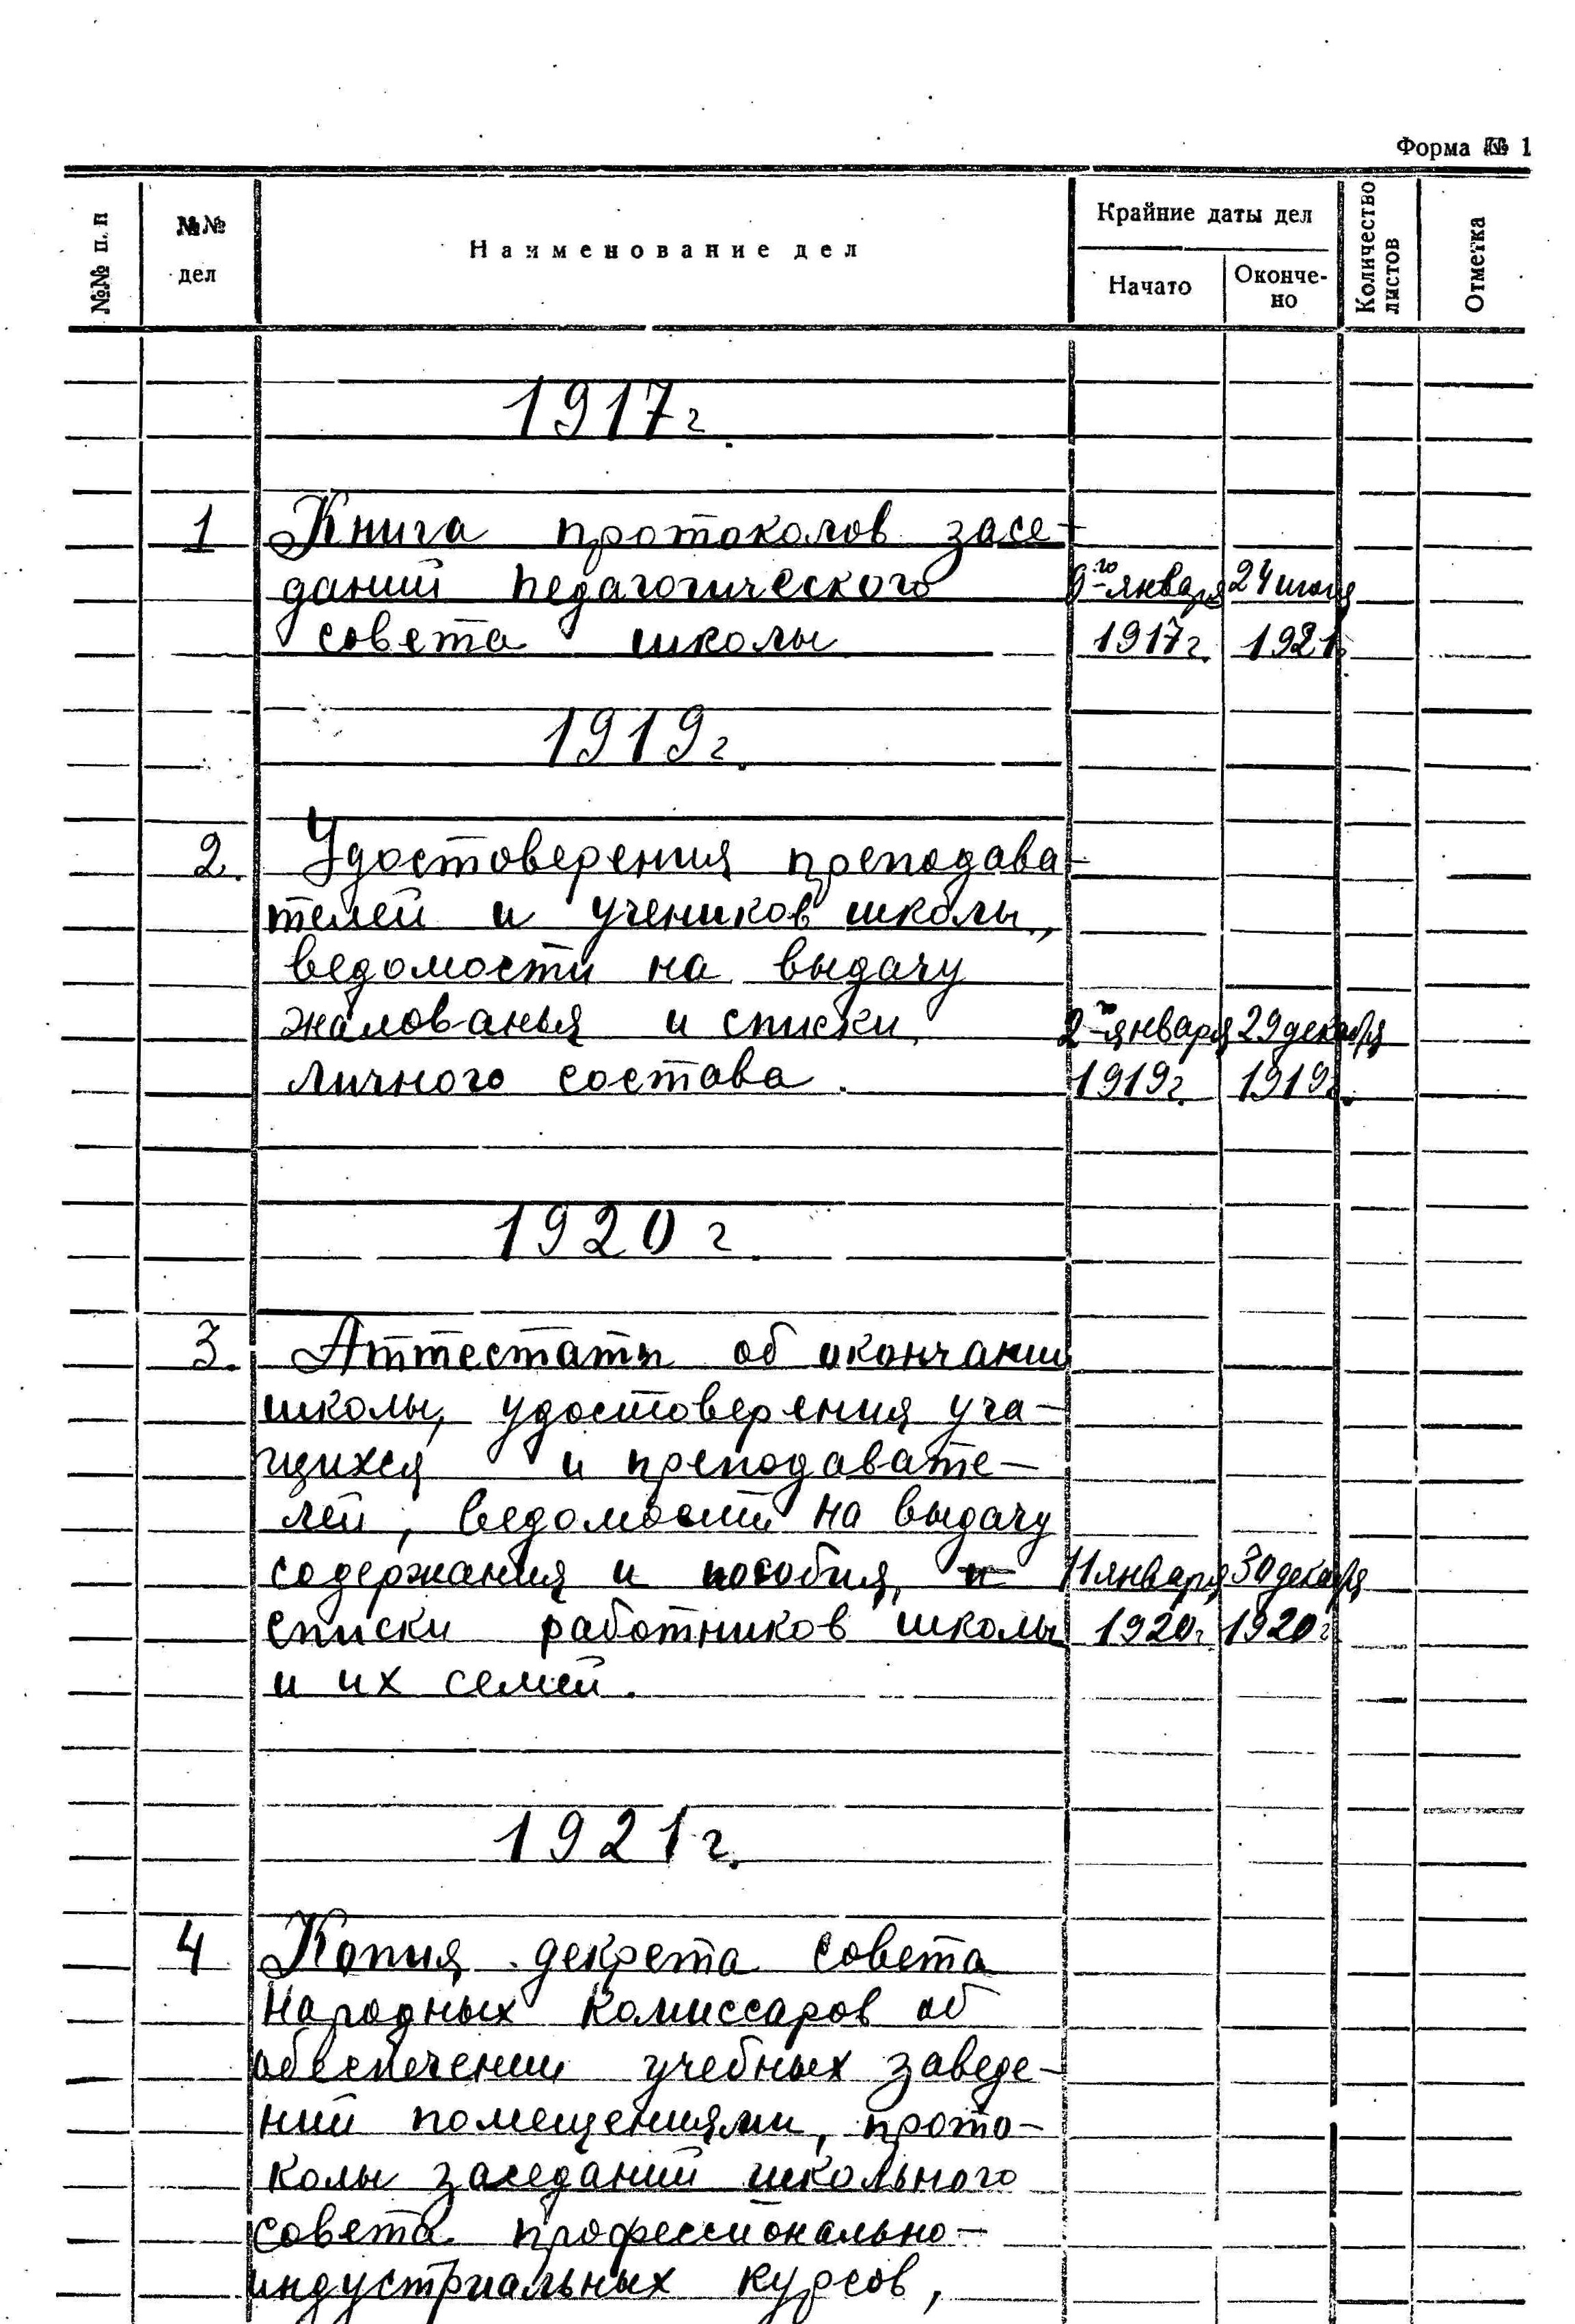 Форма № 1
№№ п. п
№№ дел
Наименование дел
Крайние даты дел
Начато
Окончено
Количество листов
Отметка
1917 г.
1 Книга протоколов засе-
даний педагогического 9го января 24
совета школы 1917 г. 1921
1919 г.
2. Удостоверения преподава-
телей и учеников школы,
ведомости на выдачу
жалованья и списки 2го января 29 декабря
личного состава. 1919 г. 1919 г.
1920 г.
3. Аттестаты об окончании
школы, удостоверения уча-
щихся и преподавате-
лей, ведомости на выдачу
содержания и пособия, и 11 января 30 декабря
списки работников школы 1920 г. 1920 г.
и их семей.
1921 г.
4 Копия декрета совета
Народных комиссаров об
обеспечении учебных заведе-
ний помещениями, прото-
колы заседаний школьного
совета профессионально-
индустриальных курсов,